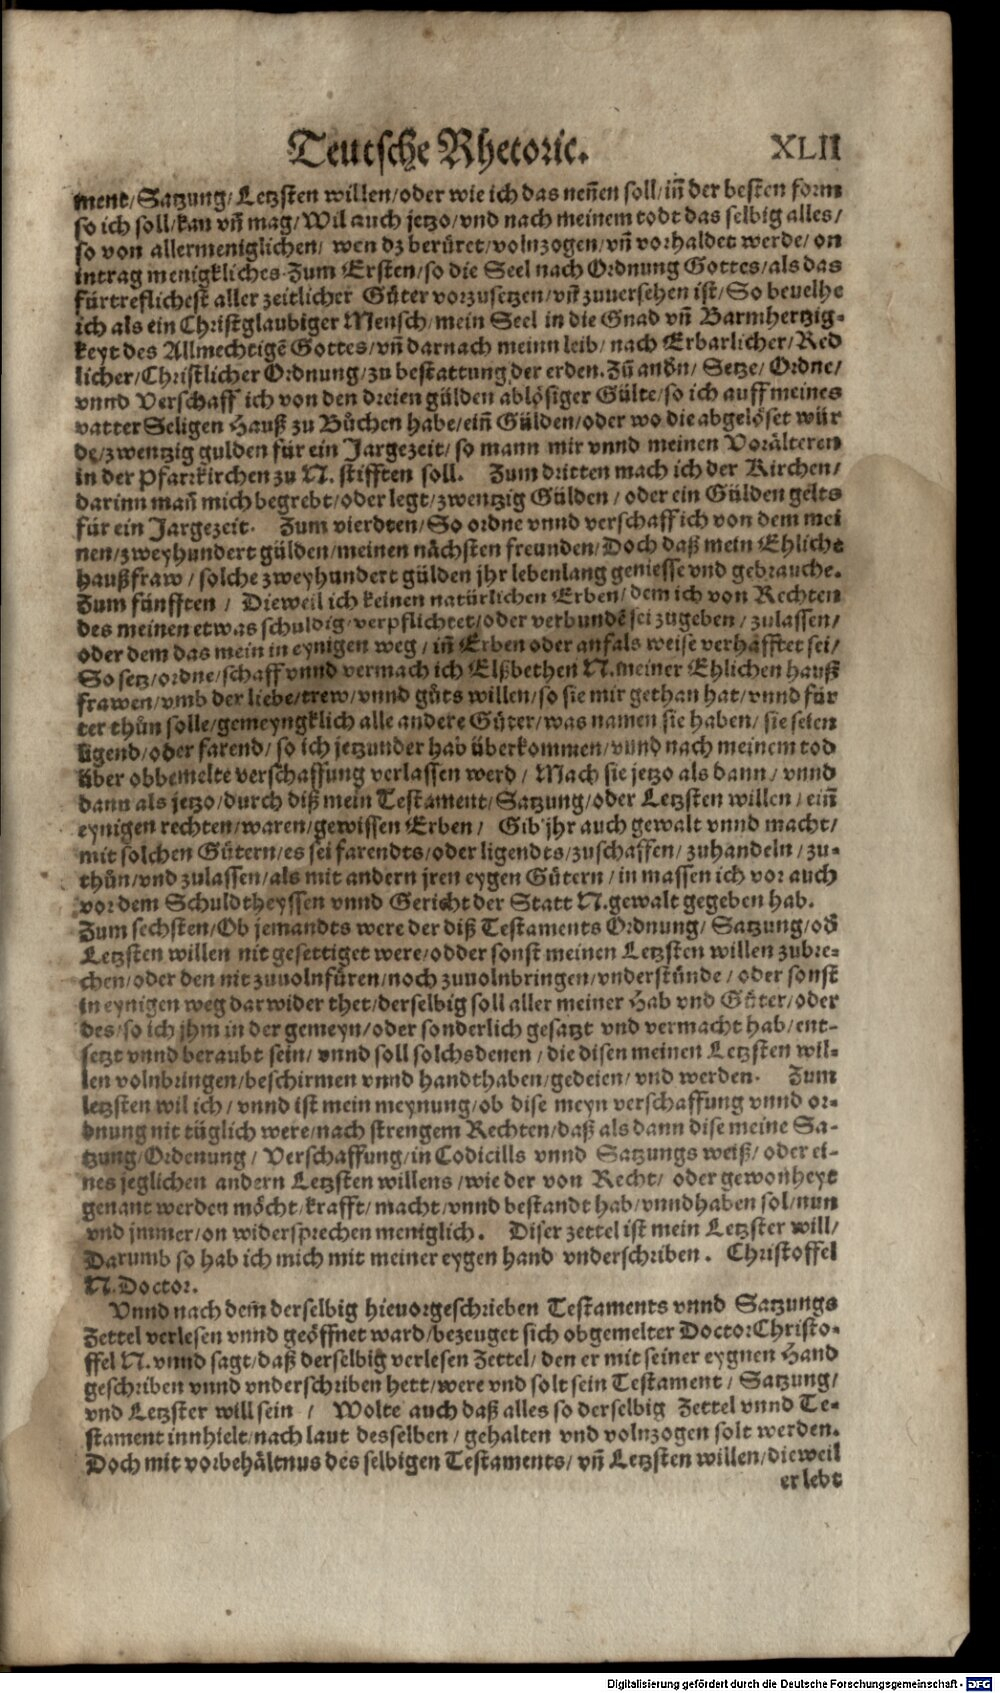 Teutsche Rhetoric. XLII
ment/ Satzung/ Letzsten willen/ oder wie ich das neñen soll/ iñ der besten form
so ich soll/ kan vñ mag/ Wil auch jetzo/ vnd nach meinem todt das selbig alles/
so von allermeniglichen/ wen dz berüret/ volnzogen/ vñ vorhaldet werde/ on
intrag menigkliches. Zum Ersten/ so die Seel nach Ordnung Gottes/ als das
fürtreflichest aller zeitlicher Güter vorzusetzen/ vñ zuuersehen ist/ So beuelhe
ich als ein Christglaubiger Mensch/ mein Seel in die Gnad vñ Barmhertzig-
keyt des Allmechtigẽ Gottes/ vñ darnach meinn leib/ nach Erbarlicher/ Red
licher/ Christlicher Ordnung/ zu bestattung der erden. Zũ andn̄/ Setze/ Ordne/
vnnd Verschaff ich von den dreien gülden ablösiger Gülte/ so ich auff meines
vatter Seligen Hauß zu Bůchen habe/ eiñ Gülden/ oder wo die abgelöset wür
de/ zwentzig gulden für ein Jargezeit/ so mann mir vnnd meinen Vorälteren
in der Pfarrkirchen zu N. stifften soll. Zum dritten mach ich der Kirchen/
darinn mañ mich begrebt/ oder legt/ zwentzig Gülden/ oder ein Gülden gelts
für ein Jargezeit. Zum vierdten/ So ordne vnnd verschaff ich von dem mei
nen/ zweyhundert gülden/ meinen nächsten freunden/ Doch daß mein Ehliche
haußfraw/ solche zweyhundert gülden jhr lebenlang geniesse vnd gebrauche.
Zum fünfften/ Dieweil ich keinen natürlichen Erben/ dem ich von Rechten
des meinen etwas schuldig/ verpflichtet/ oder verbundẽ sei zugeben/ zulassen/
oder dem das mein in eynigen weg/ iñ Erben oder anfals weise verhafftet sei/
So setz/ ordne/ schaff vnnd vermach ich Elßbethen N. meiner Ehlichen hauß
frawen/ vmb der liebe/ trew/ vnnd gůts willen/ so sie mir gethan hat/ vnnd für
ter thůn solle/ gemeyngklich alle andere Güter/ was namen sie haben/ sie seien
ligend/ oder farend/ so ich jetzunder hab überkommen/ vnnd nach meinem tod
über obbemelte verschaffung verlassen werd/ Mach sie jetzo als dann/ vnnd
dann als jetzo/ durch diß mein Testament/ Satzung/ oder Letzsten willen/ eiñ
eynigen rechten/ waren/ gewissen Erben/ Gib jhr auch gewalt vnnd macht/
mit solchen Gütern/ es sei farendts/ oder ligendts/ zuschaffen/ zuhandeln/ zu-
thůn/ vnd zulassen/ als mit andern jren eygen Gütern/ in massen ich vor auch
vor dem Schuldtheyssen vnnd Gericht der Statt N. gewalt gegeben hab.
Zum sechsten/ Ob jemandts were der diß Testaments Ordnung/ Satzung/ od̄
Letzsten willen nit gesettiget were/ odder sonst meinen Letzsten willen zubre-
chen/ oder den nit zuuolnfüren/ noch zuuolnbringen/ vnderstünde/ oder sonst
in eynigen weg darwider thet/ derselbig soll aller meiner Hab vnd Güter/ oder
des/ so ich jhm in der gemeyn/ oder sonderlich gesatzt vnd vermacht hab/ ent-
setzt vnnd beraubt sein/ vnnd soll solchs denen/ die disen meinen Letzsten wil-
len volnbringen/ beschirmen vnnd handthaben/ gedeien/ vnd werden. Zum
letzsten wil ich/ vnnd ist mein meynung/ ob dise meyn verschaffung vnnd or-
dnung nit tüglich were/ nach strengem Rechten/ daß als dann dise meine Sa-
tzung/ Ordenung/ Verschaffung/ in Codicills vnnd Satzungs weiß/ oder ei-
nes jeglichen andern Letzsten willens/ wie der von Recht/ oder gewonheyt
genant werden möcht/ krafft/ macht/ vnnd bestandt hab/ vnnd haben sol/ nun
vnd jmmer/ on widersprechen meniglich. Diser zettel ist mein Letzster will/
Darumb so hab ich mich mit meiner eygen hand vnderschriben. Christoffel
N. Doctor.
Vnnd nach dem̃ derselbig hieuorgeschrieben Testaments vnnd Satzungs
Zettel verlesen vnnd geöffnet ward/ bezeuget sich obgemelter Doctor Christo-
ffel N. vnnd sagt/ daß derselbig verlesen Zettel/ den er mit seiner eygnen Hand
geschriben vnnd vnderschriben hett/ were vnd solt sein Testament/ Satzung/
vnd Letzster will sein/ Wolte auch daß alles so derselbig Zettel vnnd Te-
stament innhielt/ nach laut desselben/ gehalten vnd volnzogen solt werden.
Doch mit vorbehältnus des selbigen Testaments/ vñ Letzsten willen/ dieweil
er lebt
Digitalisierung gefördert durch die Deutsche Forschungsgemeinschaft - DFG